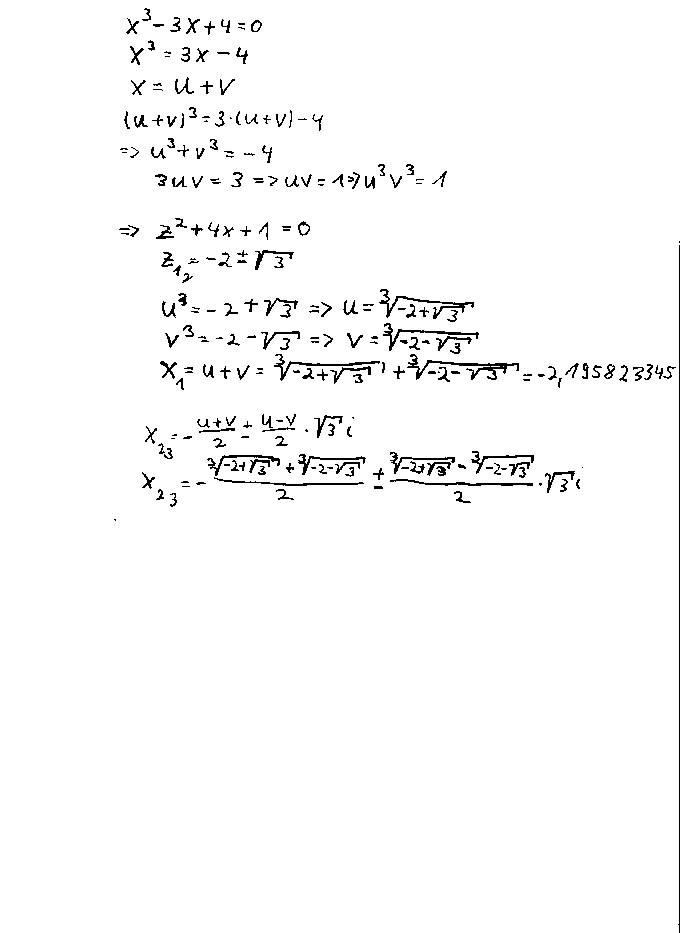 x³ - 3x + 4 = 0
x³ = 3x - 4
x = u + v
(u + v)³ = 3·(u + v) - 4
=> u³ + v³ = -4
3uv = 3 => uv = 1 => u³v³ = 1
=> z² + 4x + 1 = 0
z₁₂ = -2 ± √3
u³ = -2 + √3 => u = ∛(-2+√3)
v³ = -2 - √3 => v = ∛(-2-√3)
x₁ = u + v = ∛(-2+√3) + ∛(-2-√3) = -2,195823345
x₂₃ = -(u+v)/2 ± (u-v)/2 · √3 i
x₂₃ = -(∛(-2+√3) + ∛(-2-√3))/2 ± (∛(-2+√3) - ∛(-2-√3))/2 · √3 i